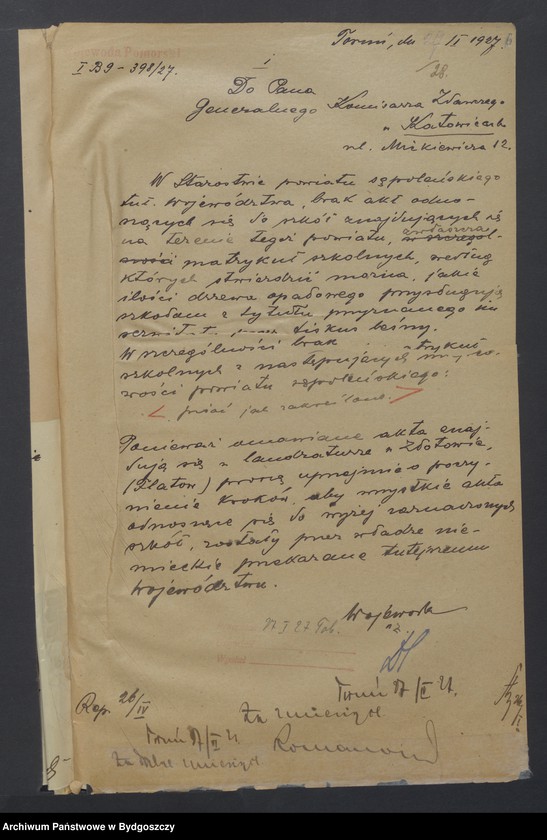 Wojewoda Pomorski
Toruń, dn II 1927
I B9 - 398/27.
28.
1
Do Pana
Generalnego Komisarza Zdawczego
w Katowicach
ul. Mickiewicza 12.
W Starostwie powiatu sępoleńskiego
tut. Województwa, brak akt odno-
szących się do szkół znajdujących się
na terenie tegoż powiatu, zwłaszcza w szczegól-
ności matrykuł szkolnych, według
których stwierdzić można, jakie
ilości drzewa opałowego przysługują
szkołom z tytułu przyznanego im
serwitutu przez fiskus leśny.
W szczególności brak matrykuł
szkolnych z następujących miejsco-
wości powiatu sępoleńskiego:
< pisać jak zakreślone. >
Ponieważ omawiane akta znaj-
dują się w landraturze w Złotowie,
(Flatow) proszę uprzejmie o poczy-
nienie kroków, aby wszystkie akta
odnoszące się do wyżej zaznaczonych
szkół, zostały przez władze nie-
mieckie przekazane tutejszemu
Województwu.
Wojewoda
wz.
Toruń 27/II 27.
Rep. 26/IV
Za miesiąc
Toruń 27/VI 27.
Za dalsze miesiące
Archiwum Państwowe w Bydgoszczy